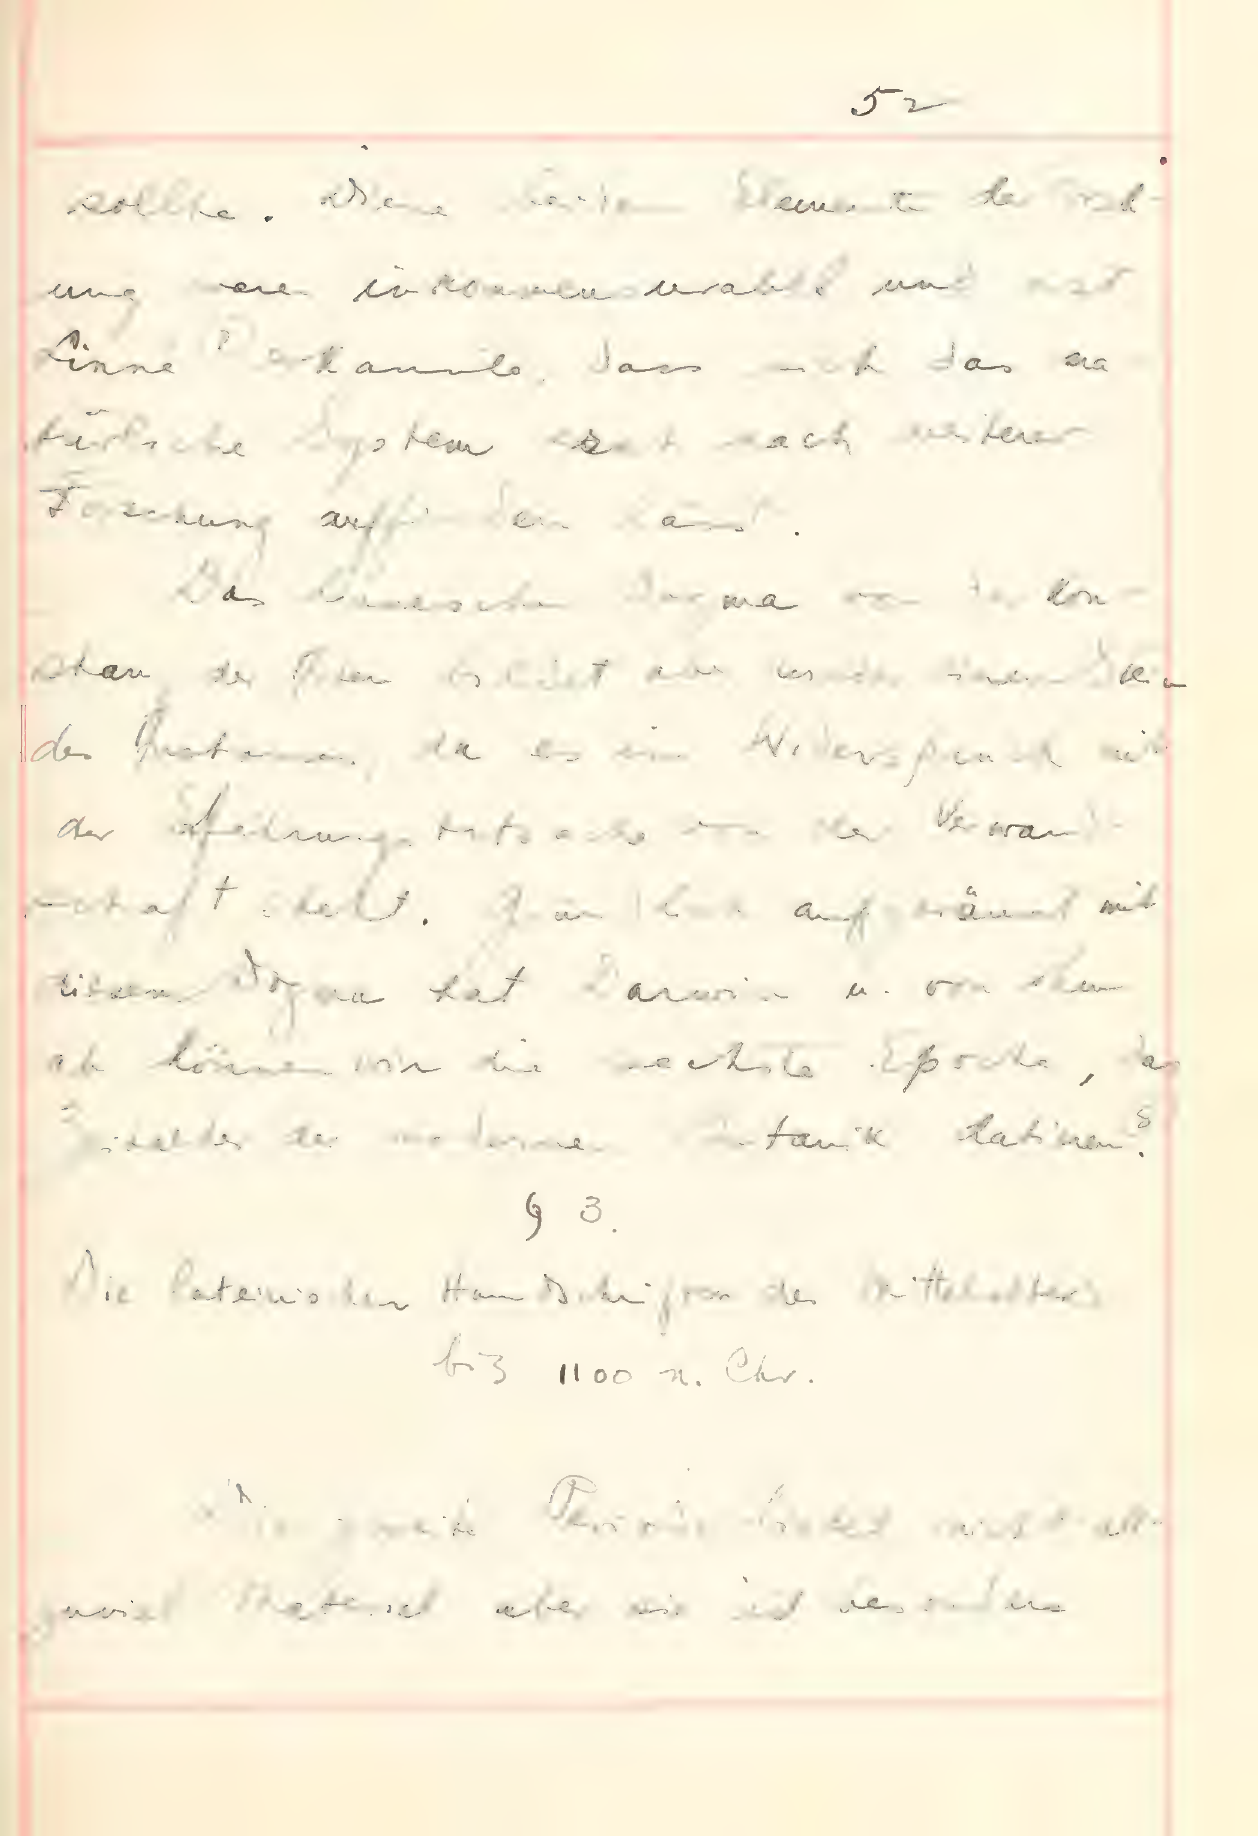 52
sollte. Diese beiden Elemente der Ord-
ung waren inkommensurabel und erst
Linné erkannte, dass sich das na
türliche System erst nach weiterer
Forschung auffinden
Das Linnesche Dogma von der Kon-
stanz der Arten bildet aber wieder einen
des da es im Widerspruch mit
der Erfahrungstatsache von der Verwand-
schaft steht. aufgeräumt mit
diesem Dogma hat Darwin u. von ihm
ab können wir die sechste Epoche, das
Zeitalter der modernen Botanik datieren.
§ 3.
Die lateinischen Handschriften des Mittelalters
bis 1100 n. Chr.
Die zweite Periode bietet nicht all-
zuviel Material aber sie ist besonders